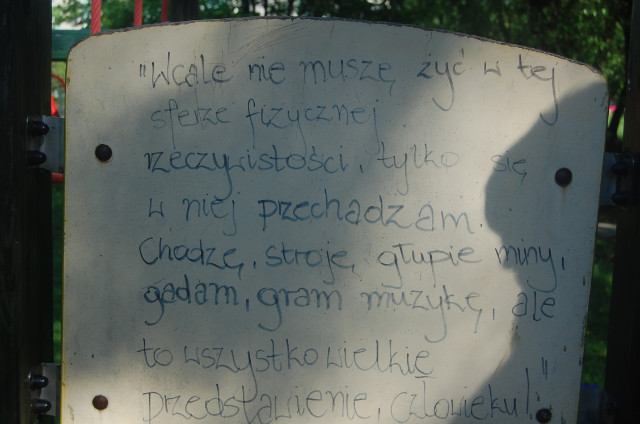 "Wcale nie muszę żyć w tej
sferze fizycznej
rzeczywistości, tylko się
w niej przechadzam.
Chodzę, stroję głupie miny,
gadam, gram muzykę, ale
to wszystko wielkie
przedstawienie, człowieku!"